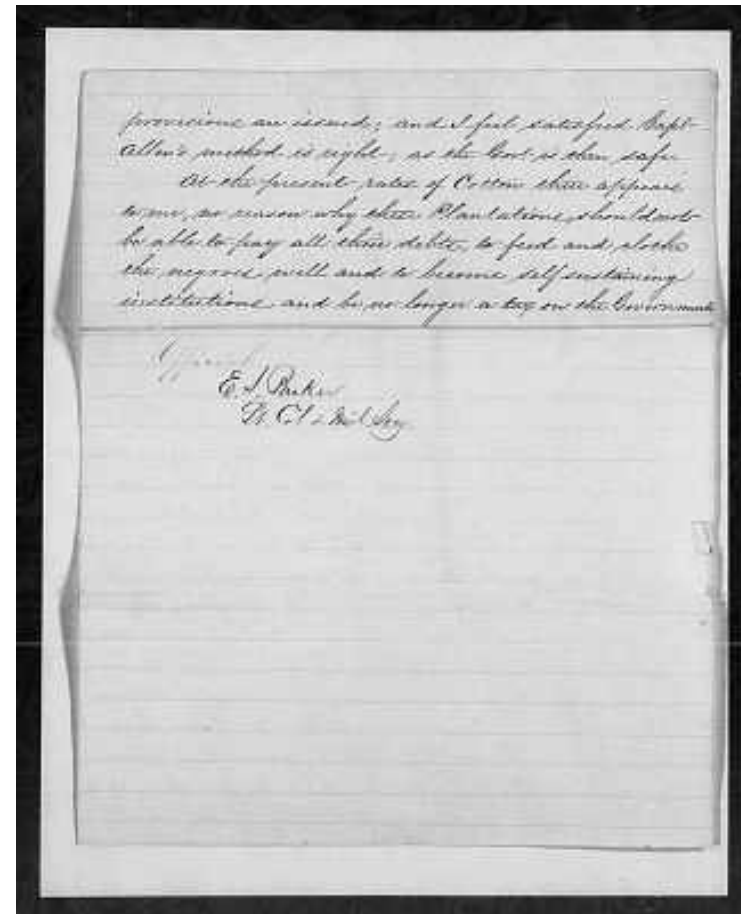 provisions are issued; and I feel satisfied Capt
Allen's method is right, as the Govt is then safe
At the present rates of Cotton there appears
to me, no reason why these Plantations, should not
be able to pay all their debts, to feed and clothe
the negroes well and to become self sustaining
institutions and be no longer a tax on the Government
Official
E. S. Parker
Lt. Col & Mil Secy